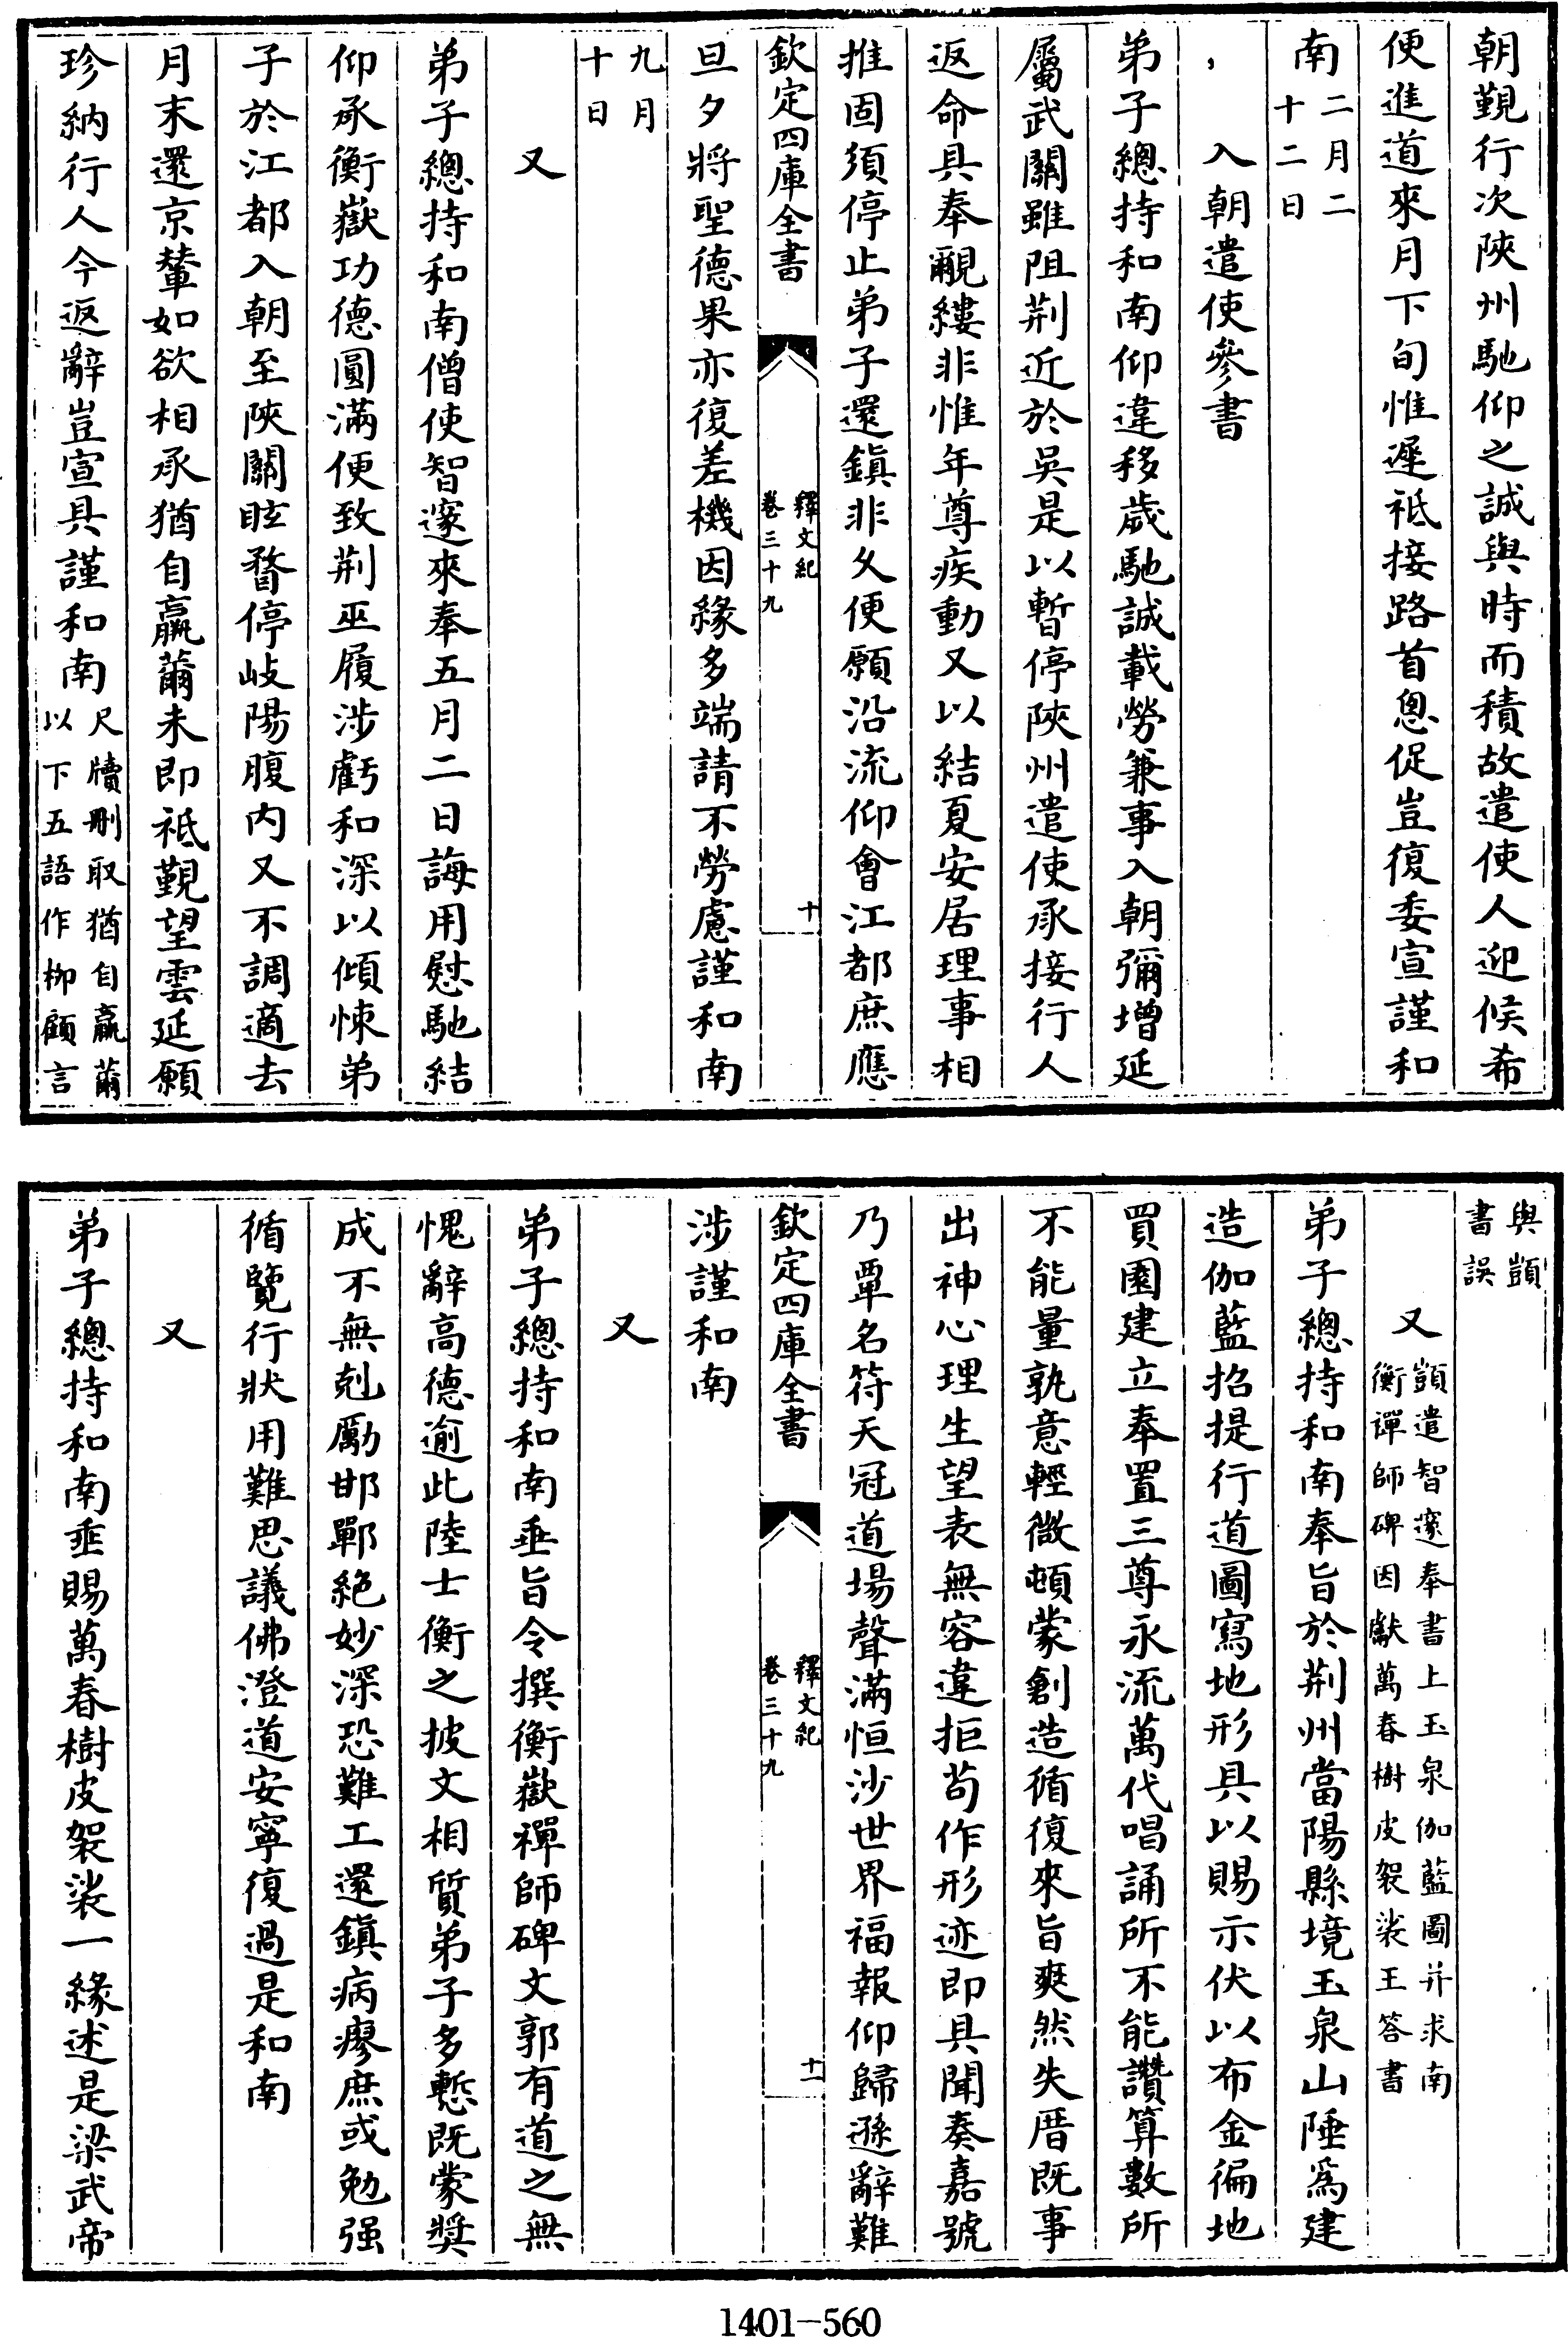 朝覲行次陝州馳仰之誠與時而積故遣使人迎候希
便進道來月下旬惟遲祗接路首悤促豈復委宣謹和
南二月二十二日
入朝遣使參書
弟子總持和南仰違移歲馳誠載勞兼事入朝彌增延
屬武關雖阻荊近於吳是以暫停陝州遣使承接行人
返命具奉覼縷非惟年尊疾動又以結夏安居理事相
推固須停止弟子還鎮非久便願沿流仰會江都庶應
欽定四庫全書
釋文紀
卷三十九
十
旦夕將聖德果亦復差機因緣多端請不勞慮謹和南
九月十日
又
弟子總持和南僧使智邃來奉五月二日誨用慰馳結
仰承衡嶽功德圓滿便致荊巫履涉虧和深以傾悚弟
子於江都入朝至陝關眩瞀停岐陽腹内又不調適去
月末還京輦如欲相承猶自羸薾未即祗覲望雲延願
珍納行人今返辭豈宣具謹和南尺牘刪取猶自羸薾以下五語作柳顧言
與顗書誤
又顗遣智邃奉書上玉泉伽藍圖并求南衡禪師碑因獻萬春樹皮袈裟王答書
弟子總持和南奉旨於荊州當陽縣境玉泉山陲爲建
造伽藍招提行道圖寫地形具以賜示伏以布金徧地
買園建立奉置三尊永流萬代唱誦所不能讚算數所
不能量孰意輕微頓蒙創造循復來旨爽然失厝既事
出神心理生望表無容違拒苟作形迹即具聞奏嘉號
乃覃名符天冠道場聲滿恒沙世界福報仰歸遜辭難
欽定四庫全書
釋文紀
卷三十九
十一
涉謹和南
又
弟子總持和南垂旨令撰衡嶽禪師碑文郭有道之無
愧辭高德逾此陸士衡之披文相質弟子多慙既蒙奬
成不無剋勵邯鄲絶妙深恐難工還鎮病瘳庶或勉强
循覽行狀用難思議佛澄道安寧復過是和南
又
弟子總持和南垂賜萬春樹皮袈裟一緣述是梁武帝
1401-560